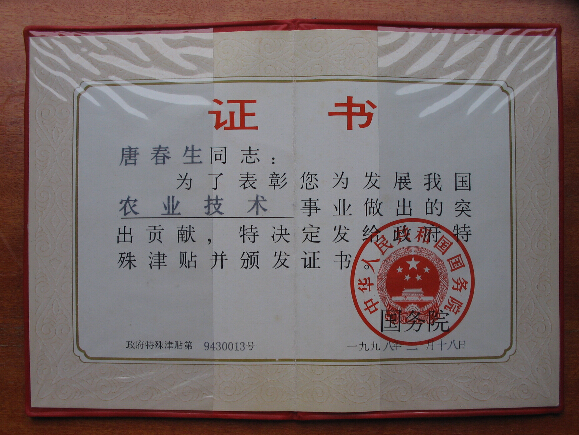 证书
唐春生同志：
为了表彰您为发展我国
农业技术事业做出的突
出贡献，特决定发给政府特
殊津贴并颁发证书
中华人民共和国国务院
国务院
政府特殊津贴第 9430013号
一九九八年 月十八日